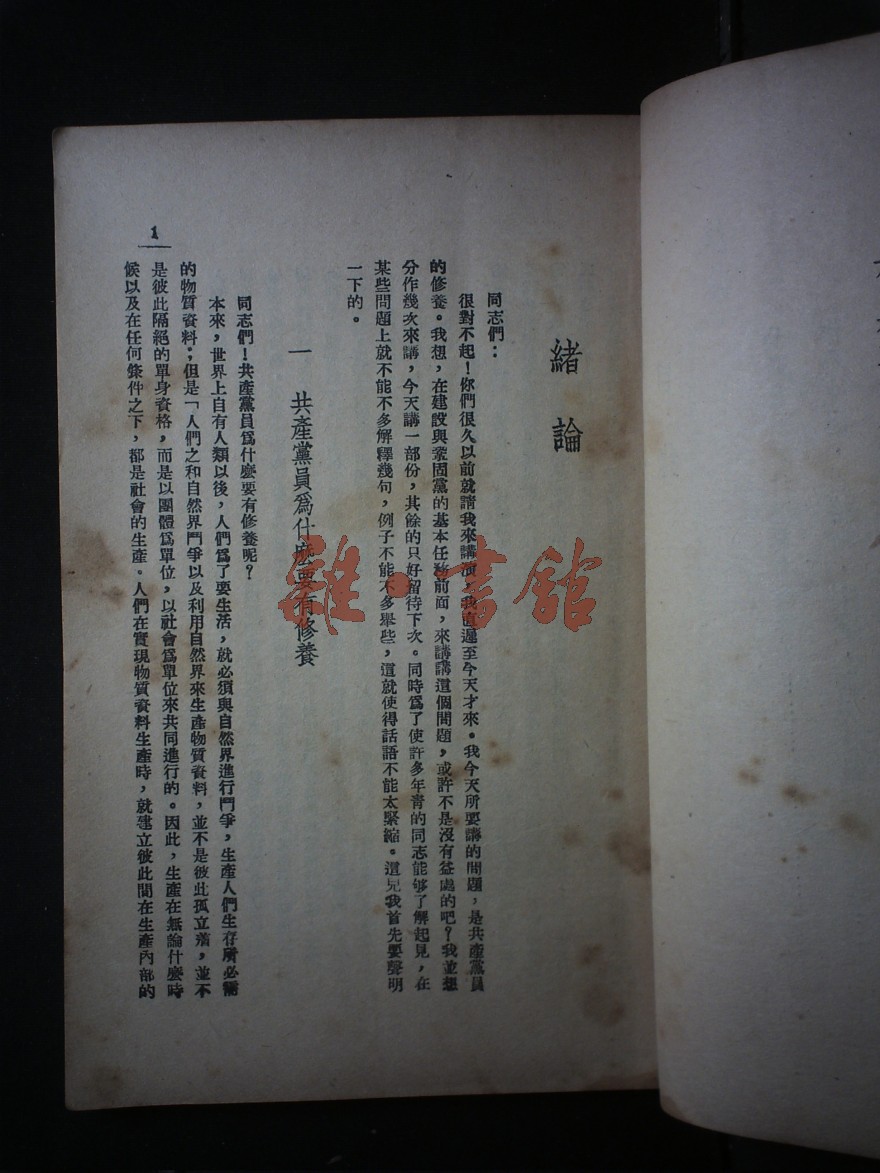 緒論
同志們：
很對不起！你們很久以前就請我來講演，我直遲至今天才來。我今天所要講的問題，是共產黨員
的修養。我想，在建設與鞏固黨的基本任務前面，來講講這個問題，或許不是沒有益處的吧？我並想
分作幾次來講，今天講一部份，其餘的只好留待下次。同時爲了使許多年青的同志能够了解起見，在
某些問題上就不能不多解釋幾句，例子不能不多舉些，這就使得話語不能太緊縮。這兒我首先要聲明
一下的。
一 共產黨員爲什麽要有修養
同志們！共產黨員爲什麽要有修養呢？
本來，世界上自有人類以後，人們爲了要生活，就必須與自然界進行鬥爭，生產人們生存所必需
的物質資料；但是「人們之和自然界鬥爭以及利用自然界來生產物質資料，並不是彼此孤立着，並不
是彼此隔絕的單身資格，而是以團體爲單位，以社會爲單位來共同進行的。因此，生產在無論什麽時
候以及在任何條件之下，都是社會的生產。人們在實現物質資料生產時，就建立彼此間在生產內部的
1
雜·書館